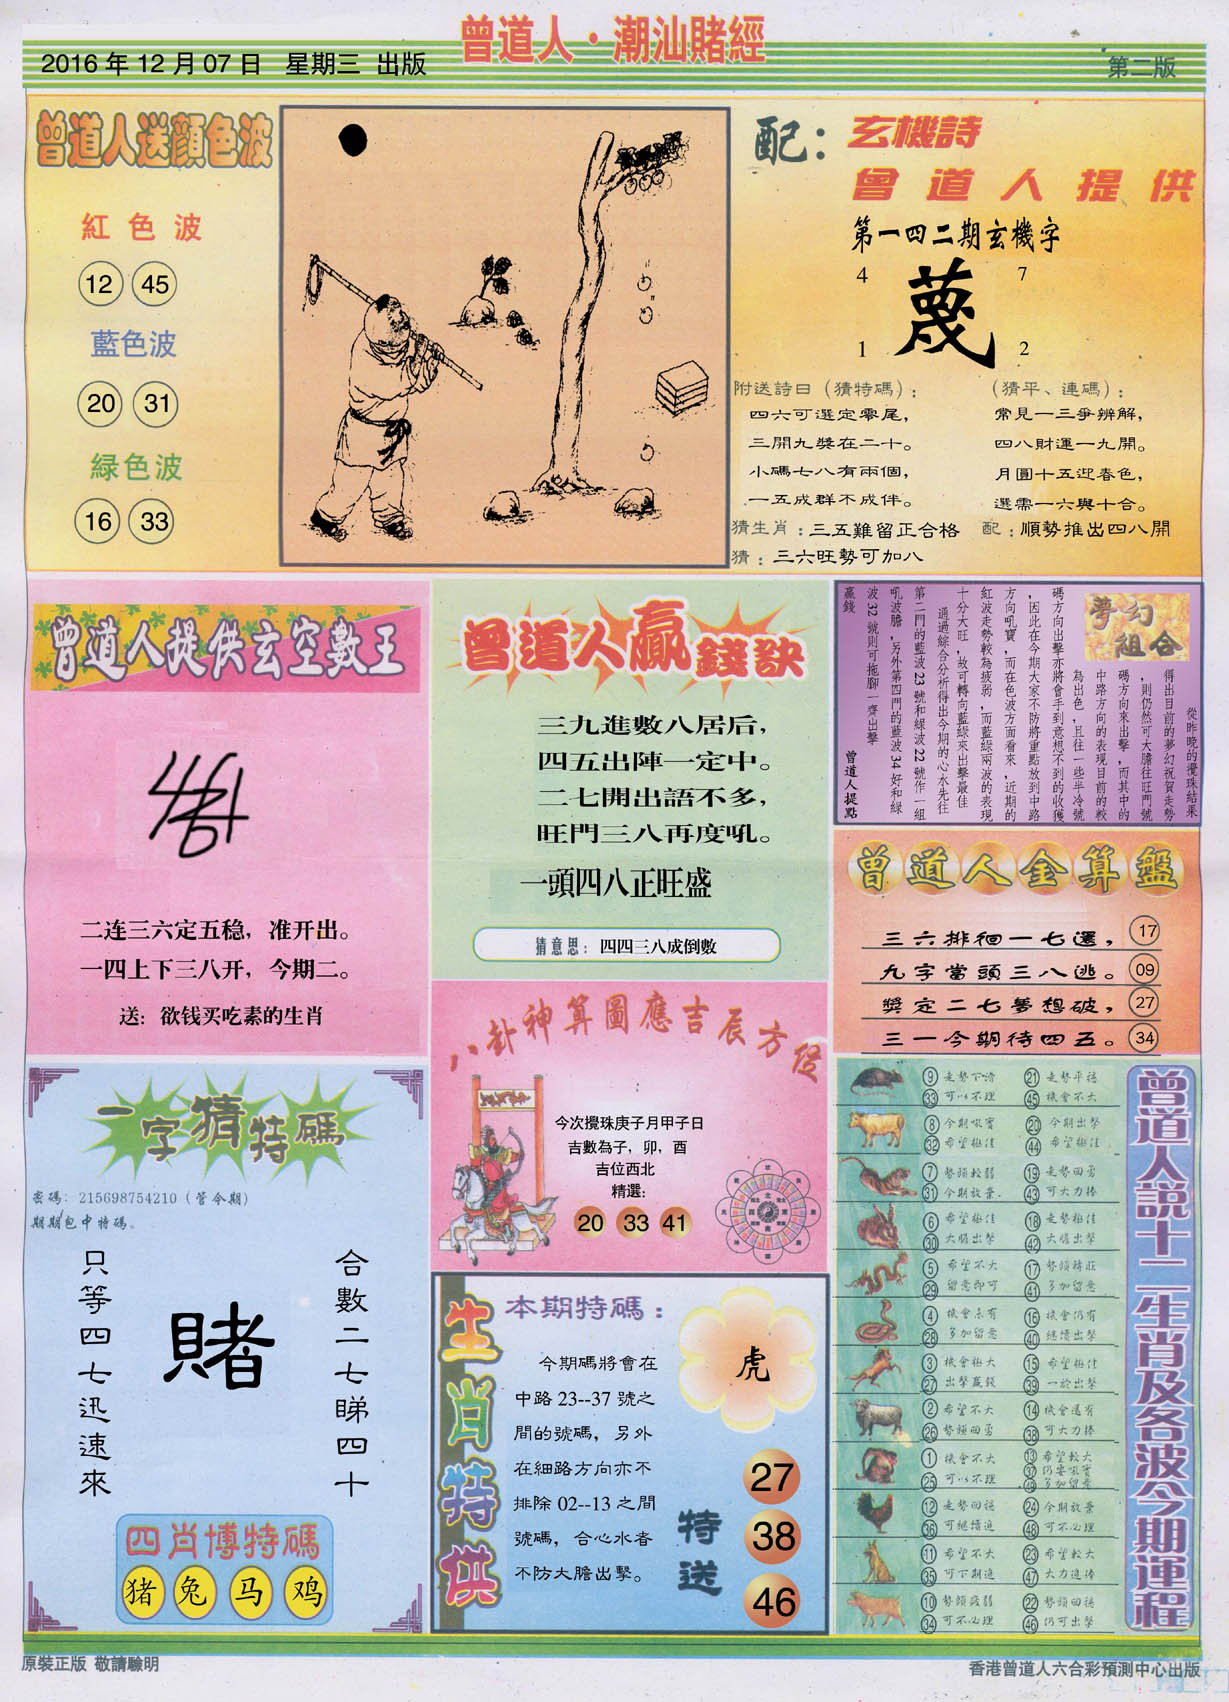 曾道人·潮汕賭經
2016年12月07日 星期三 出版
第二版
曾道人送顏色波
紅色波
12 45
藍色波
20 31
緑色波
16 33
配：
玄機詩
曾道人提供
第一四二期玄機字
4 7
蔑
1 2
附送詩曰（猜特碼）：
四六可選定零尾，
三開九獎在二十。
小碼七八有兩個，
一五成群不成伴。
（猜平、連碼）：
常見一三爭辨解，
四八財運一九開。
月圓十五迎春色，
選需一六與十合。
猜生肖：三五難留正合格
配：順勢推出四八開
猜：三六旺勢可加八
曾道人提供玄空數王
二连三六定五稳，准开出。
一四上下三八开，今期二。
送：欲钱买吃素的生肖
曾道人贏錢訣
三九進數八居后，
四五出陣一定中。
二七開出語不多，
旺門三八再度吼。
一頭四八正旺盛
猜意思：四四三八成倒數
夢幻組合
從昨晚的攪珠結果
得出目前的夢幻祝賀走勢
，則仍然可大膽往旺門號
碼方向來出擊，而其中的
中路方向的表現目前的較
為出色，且往一些半冷號
碼方向出擊亦將會手到意想不到的收獲
，因此在今期大家不防將重點放到中路
方向吼寶，而在色波方面看來，近期的
紅波走勢較為疲弱，而藍綠兩波的表現
十分大旺，故可轉向藍綠來出擊最佳
通過綜合分析得出今期的心水先往
第二門的藍波23號和綠波22號作一組
吼波膽，另外第四門的藍波34好和綠
波32號則可拖腳一齊出擊
贏錢
曾道人提點
曾道人金算盤
三六排徊一七選， 17
九字當頭三八逃。 09
獎定二七夢想破， 27
三一今期待四五。 34
一字猜特碼
密碼：215698754210（管今期）
期期包中特碼。
合數二七睇四十
賭
只等四七迅速來
四肖博特碼
猪 兔 马 鸡
八卦神算圖應吉辰方位
今次攪珠庚子月甲子日
吉數為子，卯，酉
吉位西北
精選：
20 33 41
生肖特供
本期特碼：
今期碼將會在
中路23--37號之
間的號碼，另外
在細路方向亦不
排除02--13之間
號碼，合心水者
不防大膽出擊。
虎
特送
27
38
46
曾道人說十二生肖及各波今期運程
⑨ 走勢下滑 ㉑ 走勢平穩
㉝ 可以不理 ㊺ 機會不大
⑧ 今期吸寶 ⑳ 今期出擊
㉜ 希望極佳 ㊹ 希望極佳
⑦ 勢頭較弱 ⑲ 走勢回勇
㉛ 今期放棄. ㊸ 可大力捧
⑥ 希望極佳 ⑱ 走勢極佳
㉚ 大膽出擊 ㊷ 大膽出擊
⑤ 希望不大 ⑰ 勢頭轉旺
㉙ 留意即可 ㊶ 多加留意
④ 機會未有 ⑯ 機會仍有
㉘ 多加留意 ㊵ 繼續出擊
③ 機會極大 ⑮ 希望極佳
㉗ 出擊贏錢 ㊴ 一於出擊
② 希望不大 ⑭ 機會還有
㉖ 勢頭回勇 ㊳ 可大力捧
① 機會不大 ⑬ 希望較大
㉕ 可以不理 ㊲ 仍要吸寶
㊾ 多加留意
⑫ 走勢回穩 ㉔ 今期放棄
㊱ 可繼續追 ㊽ 可不必理
⑪ 希望不大 ㉓ 希望較大
㉟ 可下期追 ㊼ 大力追捧
⑩ 勢頭疲弱 ㉒ 勢頭回穩
㉞ 可不必理 ㊻ 仍可出擊
原裝正版 敬請驗明
香港曾道人六合彩預測中心出版